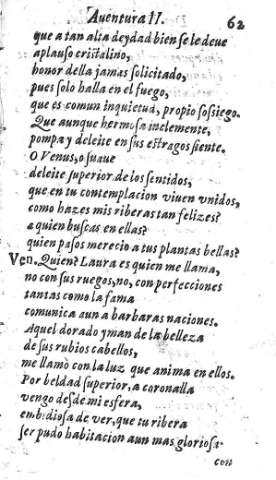 Auentura II. 62
que a tan alta deydad bien se le deue
aplauso cristalino,
honor della jamas solicitado,
pues solo halla en el fuego,
que es comun inquietud, propio sossiego.
Que aunque hermosa inclemente,
pompa y deleite en sus estragos siente.
O Venus, o suaue
deleite superior de los sentidos,
que en tu contemplacion viuen vnidos,
como hazes mis riberas tan felizes?
a quien buscas en ellas?
quien pasos merecio a tus plantas bellas?
Ven. Quien? Laura es quien me llama,
no con sus ruegos, no, con perfecciones
tantas como la fama
comunica aun a barbaras naciones.
Aquel dorado yman de la belleza
de sus rubios cabellos,
me llamò con la luz que anima en ellos.
Por beldad superior, a coronalla
vengo desde mi esfera,
embidiosa de ver, que tu ribera
ser pudo habitacion aun mas gloriosa
con